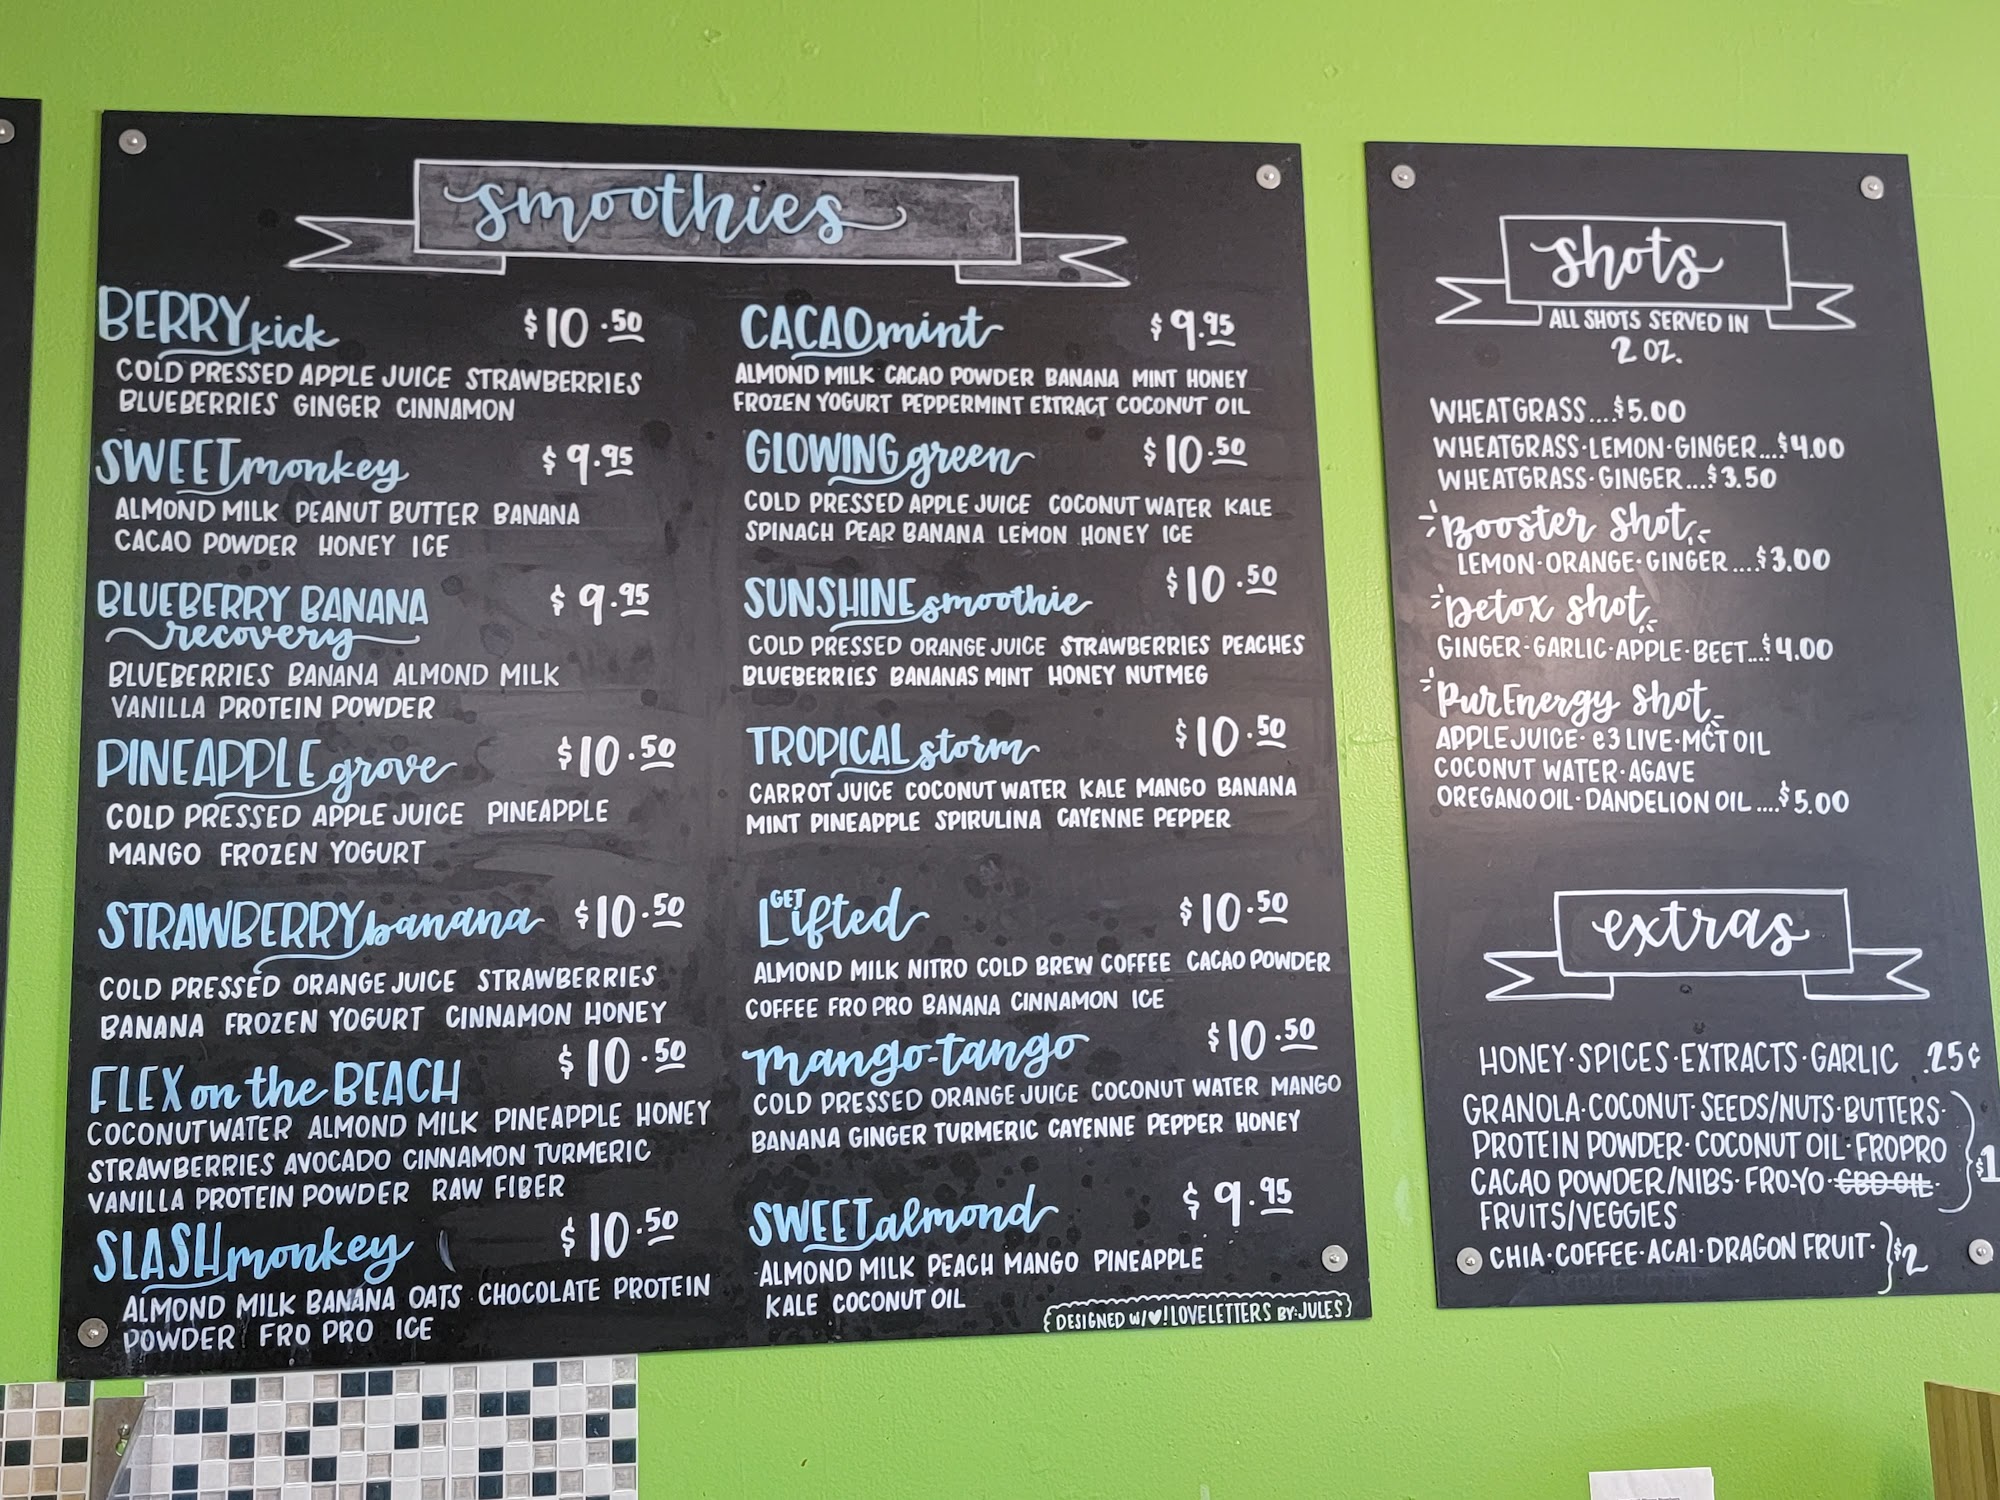 smoothies
BERRY kick $10.50
COLD PRESSED APPLE JUICE STRAWBERRIES
BLUEBERRIES GINGER CINNAMON
SWEET monkey $9.95
ALMOND MILK PEANUT BUTTER BANANA
CACAO POWDER HONEY ICE
BLUEBERRY BANANA $9.95
recovery
BLUEBERRIES BANANA ALMOND MILK
VANILLA PROTEIN POWDER
PINEAPPLE grove $10.50
COLD PRESSED APPLE JUICE PINEAPPLE
MANGO FROZEN YOGURT
STRAWBERRY banana $10.50
COLD PRESSED ORANGE JUICE STRAWBERRIES
BANANA FROZEN YOGURT CINNAMON HONEY
FLEX on the BEACH $10.50
COCONUT WATER ALMOND MILK PINEAPPLE HONEY
STRAWBERRIES AVOCADO CINNAMON TURMERIC
VANILLA PROTEIN POWDER RAW FIBER
SLASH monkey $10.50
ALMOND MILK BANANA OATS CHOCOLATE PROTEIN
POWDER FRO PRO ICE
CACAO mint $9.95
ALMOND MILK CACAO POWDER BANANA MINT HONEY
FROZEN YOGURT PEPPERMINT EXTRACT COCONUT OIL
GLOWING green $10.50
COLD PRESSED APPLE JUICE COCONUT WATER KALE
SPINACH PEAR BANANA LEMON HONEY ICE
SUNSHINE smoothie $10.50
COLD PRESSED ORANGE JUICE STRAWBERRIES PEACHES
BLUEBERRIES BANANAS MINT HONEY NUTMEG
TROPICAL storm $10.50
CARROT JUICE COCONUT WATER KALE MANGO BANANA
MINT PINEAPPLE SPIRULINA CAYENNE PEPPER
GET Lifted $10.50
ALMOND MILK NITRO COLD BREW COFFEE CACAO POWDER
COFFEE FRO PRO BANANA CINNAMON ICE
mango-tango $10.50
COLD PRESSED ORANGE JUICE COCONUT WATER MANGO
BANANA GINGER TURMERIC CAYENNE PEPPER HONEY
SWEET almond $9.95
ALMOND MILK PEACH MANGO PINEAPPLE
KALE COCONUT OIL
{DESIGNED W/♥! LOVELETTERS BY:JULES}
shots
ALL SHOTS SERVED IN
2 OZ.
WHEATGRASS...$5.00
WHEATGRASS·LEMON·GINGER...$4.00
WHEATGRASS·GINGER...$3.50
Booster shot
LEMON·ORANGE·GINGER....$3.00
Detox shot
GINGER·GARLIC·APPLE·BEET....$4.00
PurEnergy shot
APPLE JUICE·e3 LIVE·MCT OIL
COCONUT WATER·AGAVE
OREGANO OIL·DANDELION OIL....$5.00
extras
HONEY·SPICES·EXTRACTS·GARLIC .25¢
GRANOLA·COCONUT·SEEDS/NUTS·BUTTERS·
PROTEIN POWDER·COCONUT OIL·FROPRO $1
CACAO POWDER/NIBS·FRO-YO·CBD OIL·
FRUITS/VEGGIES
CHIA·COFFEE·ACAI·DRAGON FRUIT· $2